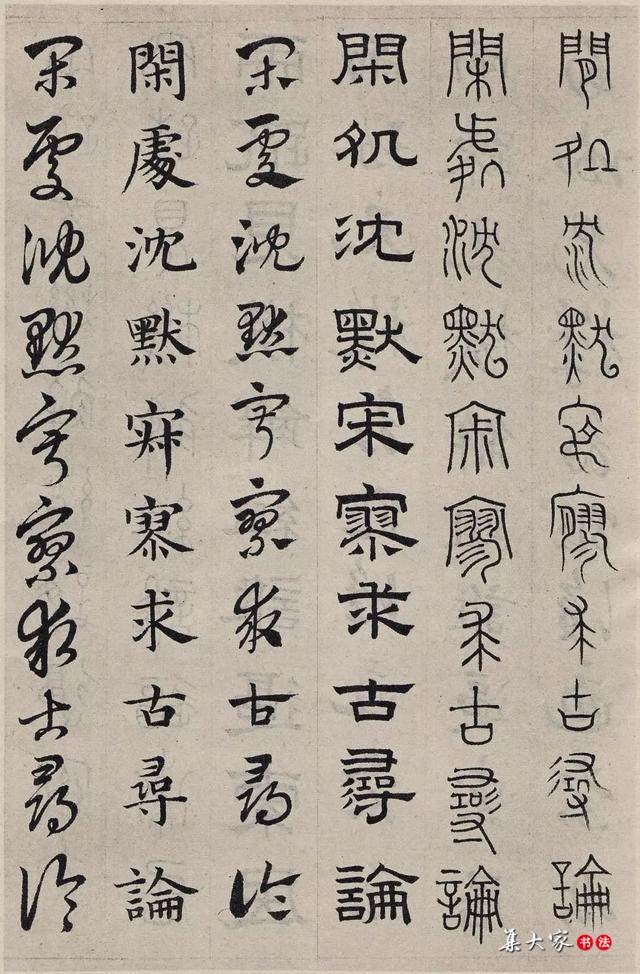 閒処沈默寂寥求古尋論
閑處沈默寂寥求古尋論
閑処沈默寂寥求古尋論
閑處沈默寂寥求古尋論
閑處沈默寂寥求古尋論
閑處沈默寂寥求古尋論
集大家书法